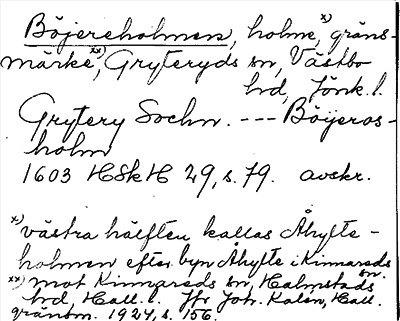 Böjereholmen, holme, x) gräns-
märke xx), Gryteryds sn, Västbo
hd, Jönk. l.
Grytery Sochn. --- Böijeros-
holm
1603 HSkH 29, s. 79. avskr.
x) västra hälften kallas Åhylte-
holmen efter byn Åhylte i Kinnareds
sn.
xx) mot Kinnareds sn, Halmstads
hd, Hall. l. Jfr Joh. Kalén, Hall.
gränsn. 1924, s. 156.